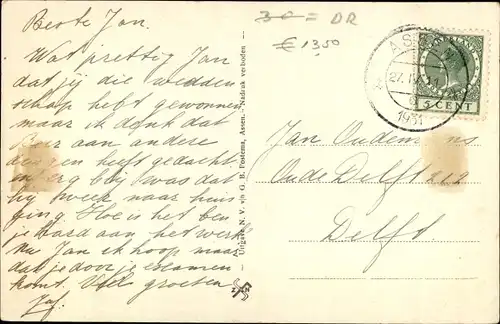 Beste Jan.
Wat prettig Jan
dat jij die wedden
schap heft gewonnen
maar ik denk dat
Beer aan andere
dingen heeft gedacht.
erg blij was dat
hij week naar huis
ging. Hoe is het ben
je hard aan het werk
Nu Jan ik hoop maar
dat je door je examen
komt. Veel groeten
30 = DR
€ 13,50
Uitgave N. V. v/h G. B. Postema, Assen. Nadruk verboden
ASSEN
27.IV
1931
NEDERLAND
5 CENT
Jan Oudemans
Oude Delft 212
Delft